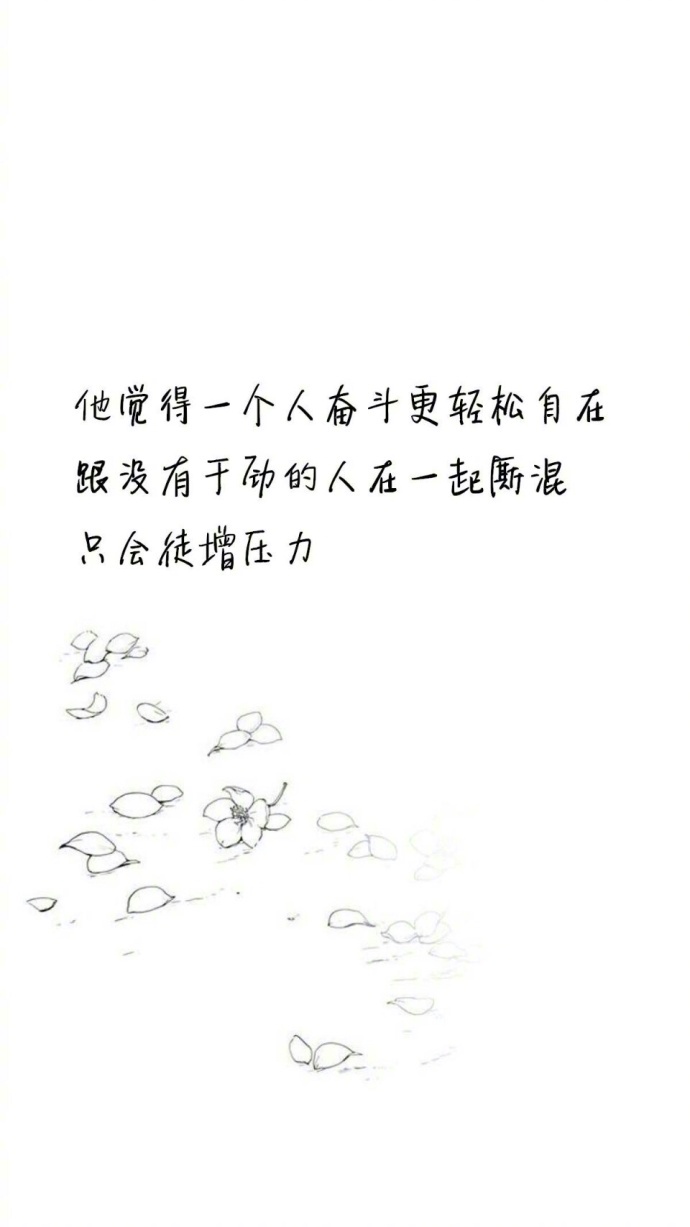 他觉得一个人奋斗更轻松自在
跟没有干劲的人在一起厮混
只会徒增压力